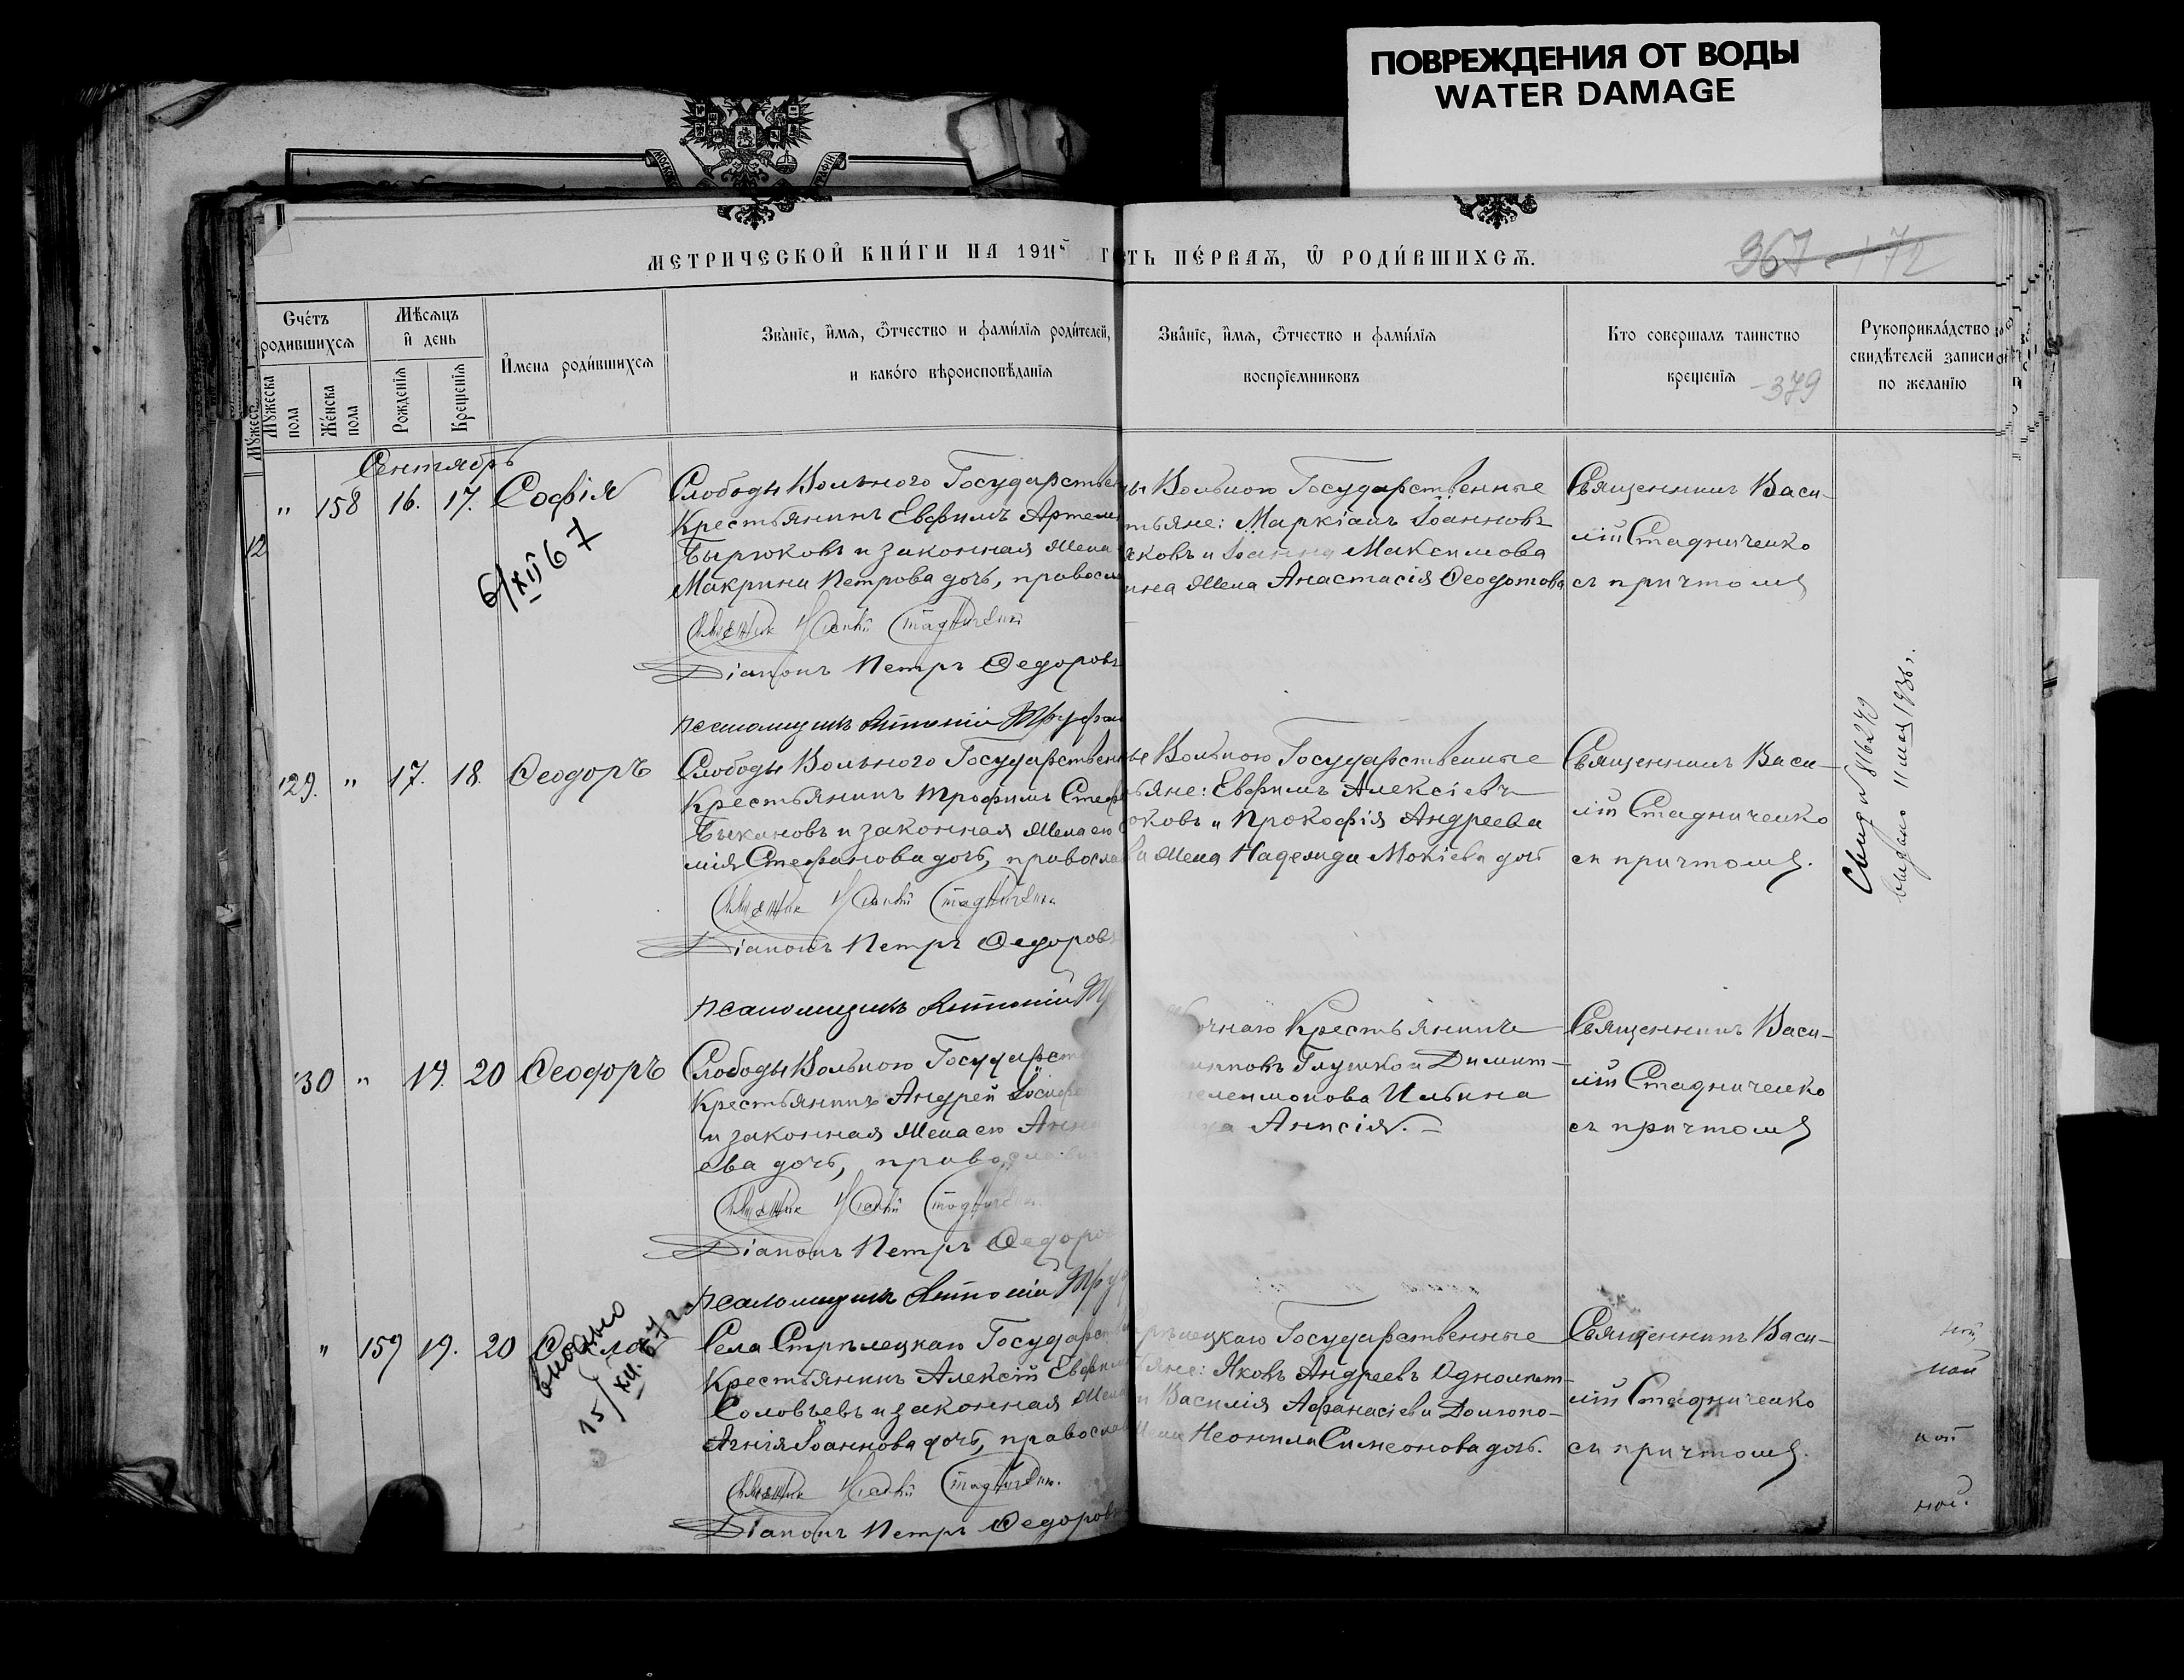 ПОВРЕЖДЕНИЯ ОТ ВОДЫ
WATER DAMAGE
МЕТРИЧЕСКОЙ КНИ́ГИ НА 1911
ТЬ ПЕ́РВАѦ, Ѡ РОДИ́ВШИХСѦ.
367 172
Сче́тъ родившихсѧ
Мѣсѧцъ и день
Имена роди́вшихсѧ
Зва́нїе, и́мѧ, ѻ҆́тчество и фами́лїѧ роди́телей,
и како́го вѣроисповѣ́данїѧ
Зва́нїе, и́мѧ, ѻ҆́тчество и фами́лїѧ
воспрїемниковъ
Кто совершалъ таинство
крещенїѧ
379
Рукоприкла́дство
свидѣтелей записи
по жела́нїю
Мужеска пола
Же́нска пола
Рожденїѧ
Крещенїѧ
Сентябрь
" 158 16. 17. Софія
6/XII 67
Слободы Вольного Государствен
Крестьянинъ Евфимъ Артем
Бырюковъ и законная жена
Макрина Петрова дочь, правосл
Діаконъ Петръ Ѳедоровъ
псаломщикъ Антоній Труфан
Вольного Государственные
тьяне: Маркіанъ Іоанновъ
ковъ и Іоанна Максимова
жена Анастасія Ѳеодотова
Священникъ Васи-
лій Стадниченко
съ причтомъ
129. " 17. 18. Ѳеодоръ
Слободы Вольного Государствен
Крестьянинъ Трофимъ Стеф
Быкановъ и законная жена его
мія Стефанова дочь, правосла
Діаконъ Петръ Ѳедоровъ
псаломщикъ Антоній Тр
Вольного Государственные
ьяне: Евфимъ Алексіевъ
оковъ и Прокофія Андреева
жена Надежда Мокіева дочь
Священникъ Васи-
лій Стадниченко
съ причтомъ.
выдано 11 мая 1936 г.
130 " 19. 20 Ѳеодоръ
Слободы Вольного Государст
Крестьянинъ Андрей Іосифо
и законная жена его Анна
ева дочь, православн
Діаконъ Петръ Ѳедоров
псаломщикъ Антоній Тру
очнаго Крестьянинъ
Глушко и Димит-
елеимонова Ильина
Анисія.
Священникъ Васи-
лій Стадниченко
съ причтомъ
" 159 19. 20
15/XII. 67 г.
Села Стрѣлецкаго Государств
Крестьянинъ Алексій Евфим
Соловьевъ и законная жена
Агнія Іоаннова дочь, правосла
Діаконъ Петръ Ѳедоровъ
рѣлецкаго Государственные
яне: Яковъ Андреевъ Однолѣт-
и Василія Афанасіева Долгопо-
Неонила Симеонова дочь.
Священникъ Васи-
лій Стадниченко
съ причтомъ.